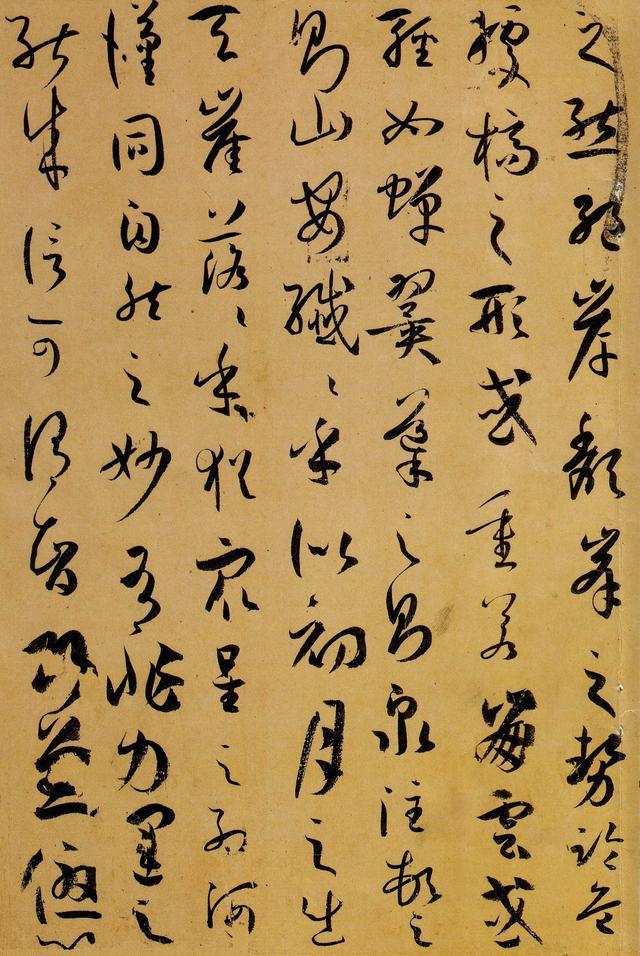 之態絕岸頹峯之勢臨危
據槁之形或重若崩雲或
輕如蟬翼導之則泉注頓之
則山安纖纖乎似初月之出
天崖落落乎猶眾星之列河
漢同自然之妙有非力運之
能成信可謂智巧兼優心